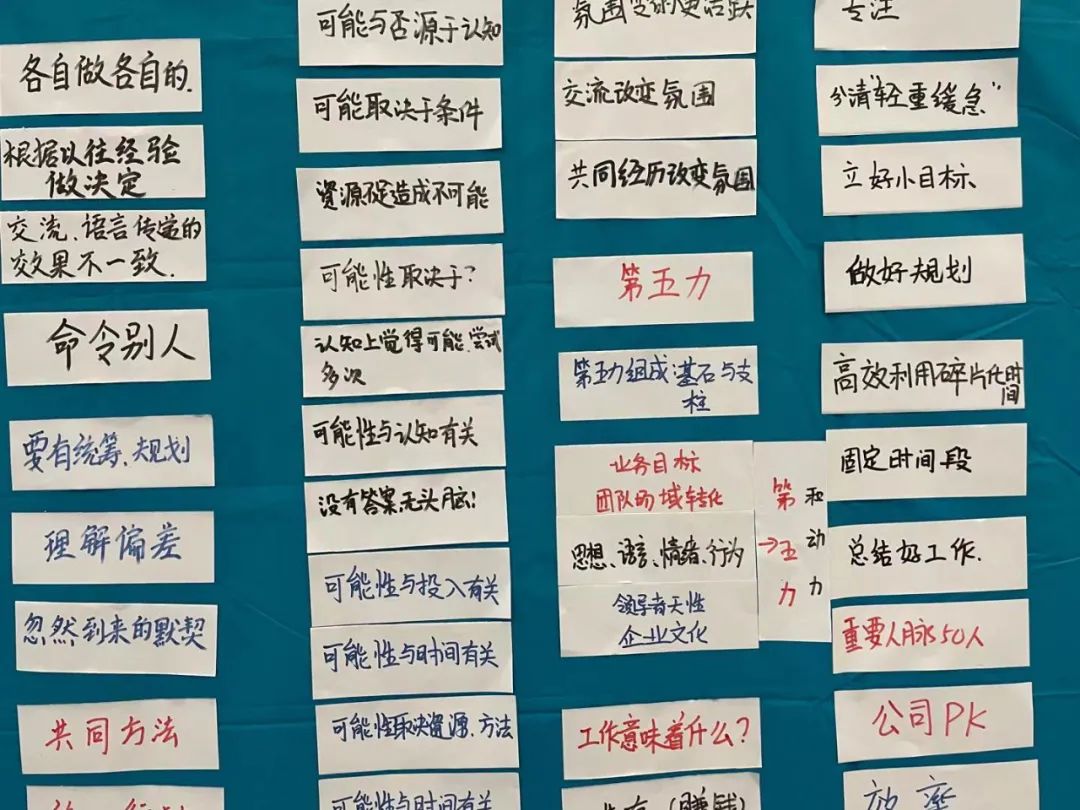 各自做各自的.
根据以往经验
做决定
交流、语言传递的
效果不一致.
命令别人
要有统筹、规划
理解偏差
忽然到来的默契
共同方法
可能与否源于认知
可能取决于条件
资源不足造成不可能
可能性取决于?
认知上觉得可能、尝试
多次
可能性与认知有关
没有答案,无头脑!
可能性与投入有关
可能性与时间有关
可能性取决资源、方法
可能性与时间有关
氛围变的更活跃
交流改变氛围
共同经历改变氛围
第五力
第五力组成:基石与支
柱
业务目标
团队场域转化
思想、语言、情绪、行为
领导者天性
企业文化
→第五力
和动力
工作意味着什么?
(赚钱)
专注
分清“轻重缓急”
立好小目标
做好规划
高效利用碎片化时
间
固定时间段
总结好工作.
重要人脉50人
公司PK